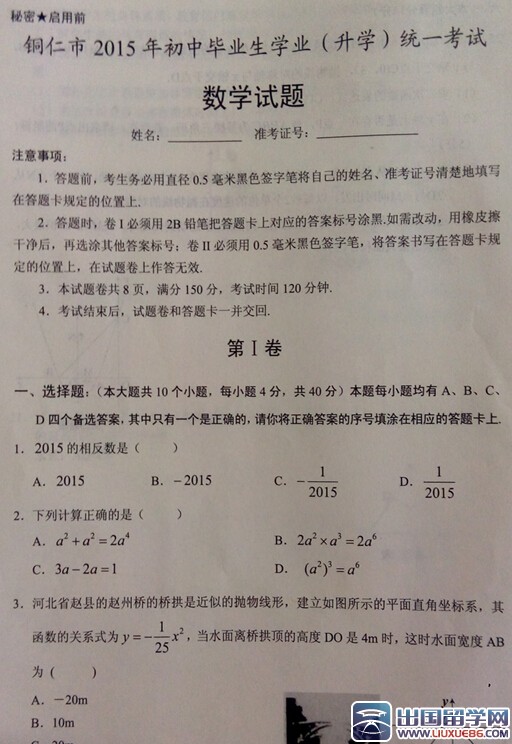 秘密★启用前
铜仁市 2015 年初中毕业生学业（升学）统一考试
数学试题
姓名：__________ 准考证号：______________
注意事项：
1．答题前，考生务必用直径 0.5 毫米黑色签字笔将自己的姓名、准考证号清楚地填写
在答题卡规定的位置上.
2．答题时，卷 I 必须用 2B 铅笔把答题卡上对应的答案标号涂黑.如需改动，用橡皮擦
干净后，再选涂其他答案标号；卷 II 必须用 0.5 毫米黑色签字笔，将答案书写在答题卡规
定的位置上，在试题卷上作答无效.
3．本试题卷共 8 页，满分 150 分，考试时间 120 分钟.
4．考试结束后，试题卷和答题卡一并交回.
第 I 卷
一、选择题：（本大题共 10 个小题，每小题 4 分，共 40 分）本题每小题均有 A、B、C、
D 四个备选答案，其中只有一个是正确的，请你将正确答案的序号填涂在相应的答题卡上.
1．2015 的相反数是（ ）
A．2015 B．－2015 C．－1/2015 D．1/2015
2．下列计算正确的是（ ）
A．a²＋a²＝2a⁴ B．2a²×a³＝2a⁶
C．3a－2a＝1 D．(a²)³＝a⁶
3．河北省赵县的赵州桥的桥拱是近似的抛物线形，建立如图所示的平面直角坐标系，其
函数的关系式为 y＝－1/25 x²，当水面离桥拱顶的高度 DO 是 4m 时，这时水面宽度 AB
为（ ）
A．－20m
y
B．10m
出国留学网
WWW.LIUXUE86.COM